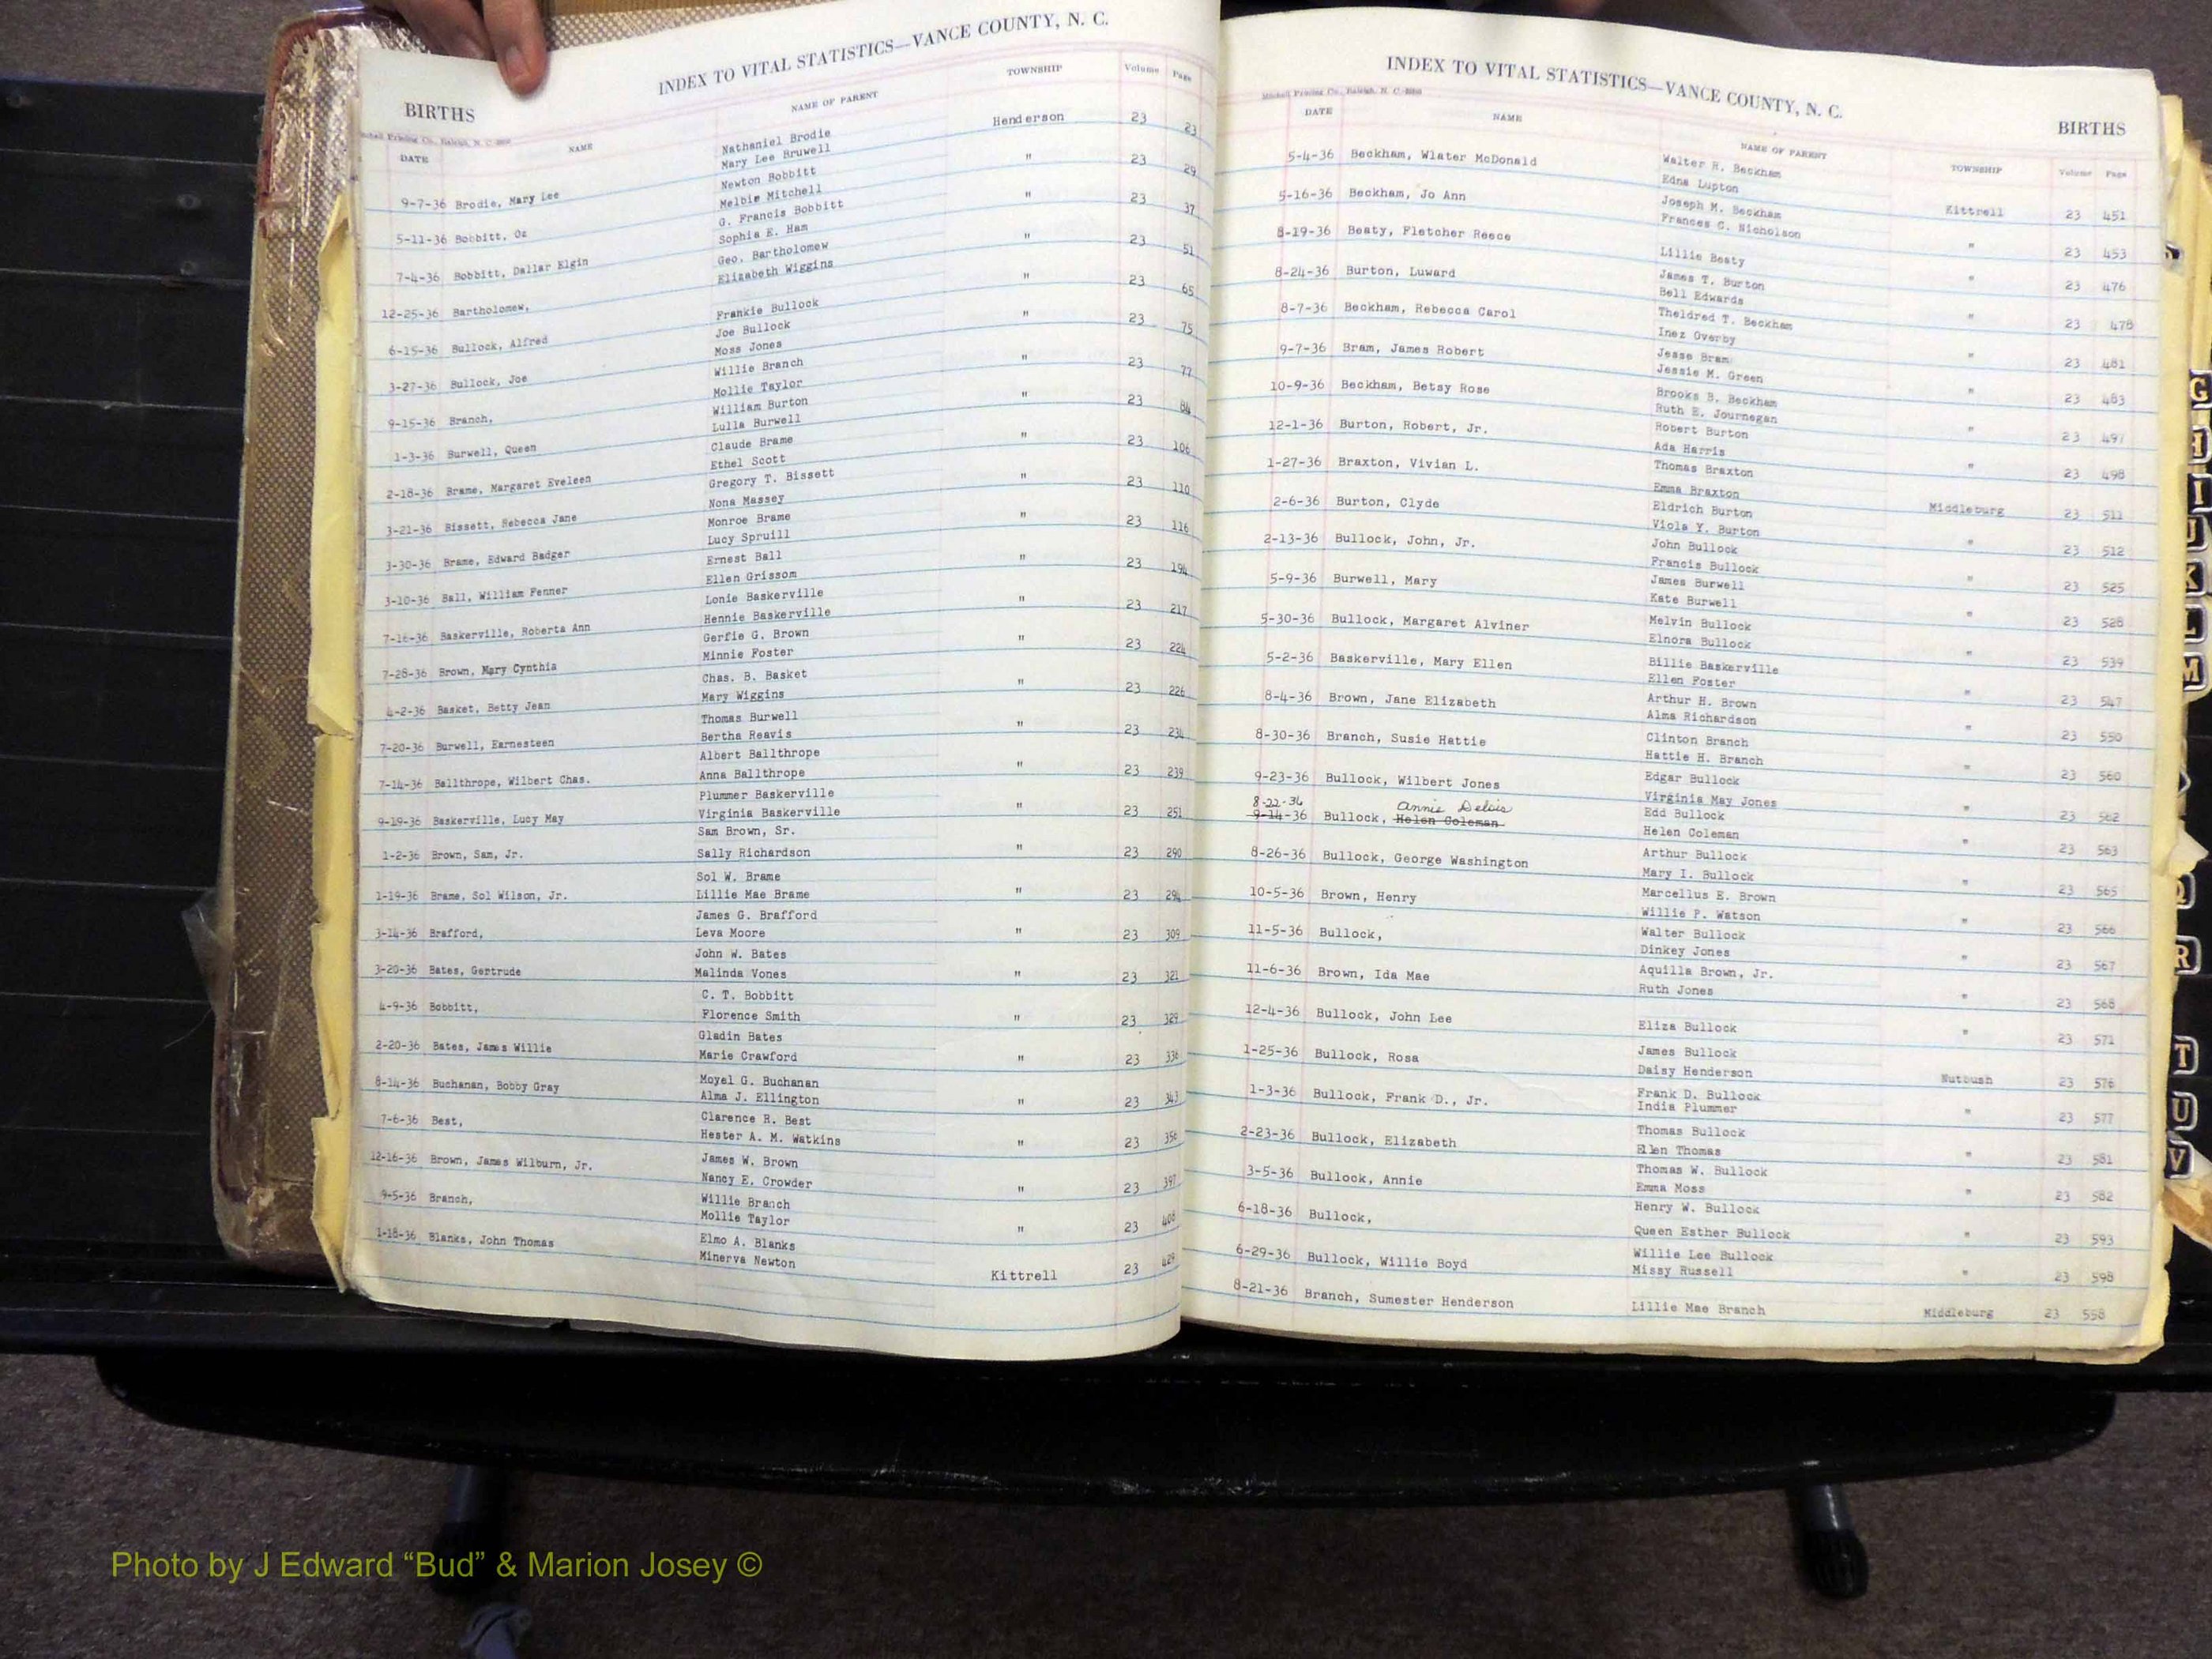 INDEX TO VITAL STATISTICS—VANCE COUNTY, N. C.
BIRTHS
Mitchell Printing Co., Raleigh, N. C.
DATE NAME NAME OF PARENT TOWNSHIP Volume Page
9-7-36 Brodie, Mary Lee Nathaniel Brodie Henderson 23 23
Mary Lee Bruwell
5-11-36 Bobbitt, Oz Newton Bobbitt " 23 29
Melbie Mitchell
7-4-36 Bobbitt, Dallar Elgin G. Francis Bobbitt " 23 37
Sophia E. Ham
12-25-36 Bartholomew, Geo. Bartholomew " 23 51
Elizabeth Wiggins
6-15-36 Bullock, Alfred Frankie Bullock " 23 65
3-27-36 Bullock, Joe Joe Bullock " 23 75
Moss Jones
9-15-36 Branch, Willie Branch " 23 77
Mollie Taylor
1-3-36 Burwell, Queen William Burton " 23 84
Lulla Burwell
2-18-36 Brame, Margaret Eveleen Claude Brame " 23 106
Ethel Scott
3-21-36 Bissett, Rebecca Jane Gregory T. Bissett " 23 110
Nona Massey
3-30-36 Brame, Edward Badger Monroe Brame " 23 116
Lucy Spruill
3-10-36 Ball, William Fenner Ernest Ball " 23 194
Ellen Grissom
7-16-36 Baskerville, Roberta Ann Lonie Baskerville " 23 217
Hennie Baskerville
7-28-36 Brown, Mary Cynthia Gerfie G. Brown " 23 224
Minnie Foster
4-2-36 Basket, Betty Jean Chas. B. Basket " 23 226
Mary Wiggins
7-20-36 Burwell, Earnesteen Thomas Burwell " 23 234
Bertha Reavis
7-14-36 Ballthrope, Wilbert Chas. Albert Ballthrope " 23 239
Anna Ballthrope
9-19-36 Baskerville, Lucy May Plummer Baskerville " 23 251
Virginia Baskerville
1-2-36 Brown, Sam, Jr. Sam Brown, Sr. " 23 290
Sally Richardson
1-19-36 Brame, Sol Wilson, Jr. Sol W. Brame " 23 294
Lillie Mae Brame
3-14-36 Brafford, James G. Brafford " 23 309
Leva Moore
3-20-36 Bates, Gertrude John W. Bates " 23 321
Malinda Vones
4-9-36 Bobbitt, C. T. Bobbitt " 23 329
Florence Smith
2-20-36 Bates, James Willie Gladin Bates " 23
Marie Crawford
8-14-36 Buchanan, Bobby Gray Moyel G. Buchanan " 23 343
Alma J. Ellington
7-6-36 Best, Clarence R. Best " 23
Hester A. M. Watkins
12-16-36 Brown, James Wilburn, Jr. James W. Brown " 23 397
Nancy E. Crowder
9-5-36 Branch, Willie Branch " 23
Mollie Taylor
1-18-36 Blanks, John Thomas Elmo A. Blanks Kittrell 23 429
Minerva Newton
INDEX TO VITAL STATISTICS—VANCE COUNTY, N. C.
BIRTHS
Mitchell Printing Co., Raleigh, N. C.
DATE NAME NAME OF PARENT TOWNSHIP Volume Page
5-4-36 Beckham, Wlater McDonald Walter R. Beckham Kittrell 23 451
Edna Lupton
5-16-36 Beckham, Jo Ann Joseph M. Beckham " 23 453
Frances C. Nicholson
8-19-36 Beaty, Fletcher Reece Lillie Beaty " 23 476
8-24-36 Burton, Luward James T. Burton " 23 478
Bell Edwards
8-7-36 Beckham, Rebecca Carol Theldred T. Beckham " 23 481
Inez Overby
9-7-36 Bram, James Robert Jesse Bram " 23 483
Jessie M. Green
10-9-36 Beckham, Betsy Rose Brooks B. Beckham " 23 497
Ruth E. Journegan
12-1-36 Burton, Robert, Jr. Robert Burton " 23 498
Ada Harris
1-27-36 Braxton, Vivian L. Thomas Braxton Middleburg 23 511
Emma Braxton
2-6-36 Burton, Clyde Eldrich Burton " 23 512
Viola Y. Burton
2-13-36 Bullock, John, Jr. John Bullock " 23 525
Francis Bullock
5-9-36 Burwell, Mary James Burwell " 23 528
Kate Burwell
5-30-36 Bullock, Margaret Alviner Melvin Bullock " 23 539
Elnora Bullock
5-2-36 Baskerville, Mary Ellen Billie Baskerville " 23 547
Ellen Foster
8-4-36 Brown, Jane Elizabeth Arthur H. Brown " 23 550
Alma Richardson
8-30-36 Branch, Susie Hattie Clinton Branch " 23 560
Hattie H. Branch
9-23-36 Bullock, Wilbert Jones Edgar Bullock " 23 562
Virginia May Jones
8-22-36 Annie Delois
9-14-36 Bullock, Helen Coleman Edd Bullock " 23 563
Helen Coleman
8-26-36 Bullock, George Washington Arthur Bullock " 23 565
Mary I. Bullock
10-5-36 Brown, Henry Marcellus E. Brown " 23 566
Willie P. Watson
11-5-36 Bullock, Walter Bullock " 23 567
Dinkey Jones
11-6-36 Brown, Ida Mae Aquilla Brown, Jr. " 23 568
Ruth Jones
12-4-36 Bullock, John Lee Eliza Bullock " 23 571
1-25-36 Bullock, Rosa James Bullock Nutbush 23 576
Daisy Henderson
1-3-36 Bullock, Frank D., Jr. Frank D. Bullock " 23 577
India Plummer
2-23-36 Bullock, Elizabeth Thomas Bullock " 23 581
Ellen Thomas
3-5-36 Bullock, Annie Thomas W. Bullock " 23 582
Emma Moss
6-18-36 Bullock, Henry W. Bullock " 23 593
Queen Esther Bullock
6-29-36 Bullock, Willie Boyd Willie Lee Bullock " 23 598
Missy Russell
8-21-36 Branch, Sumester Henderson Lillie Mae Branch Middleburg 23 558
G
H
I
J
K
L
M
Q
R
T
U
V
Photo by J Edward “Bud” & Marion Josey ©